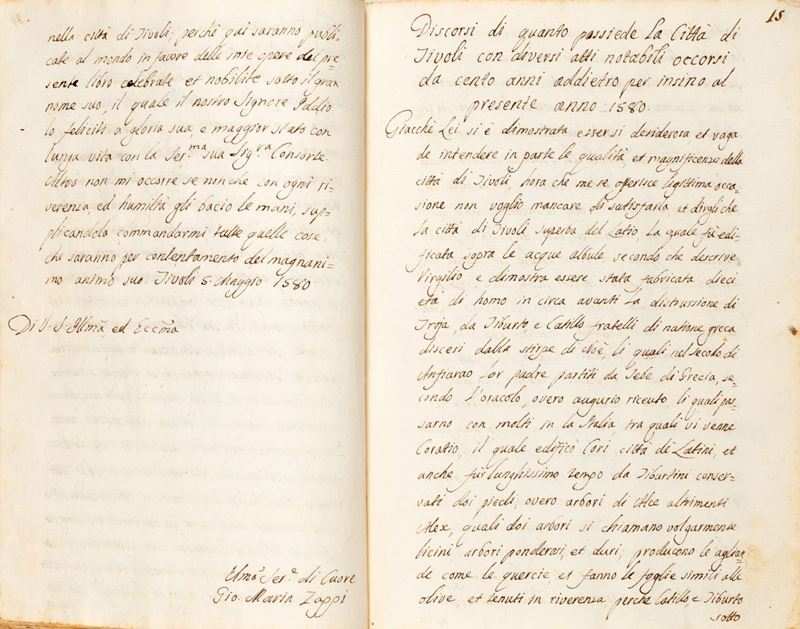 nella città di Tivoli; perchè qui saranno publi-
cate al mondo in favore delle mie opere del pre-
sente libro celebrate, et nobilite sotto il gran
nome suo, il quale il nostro Signore Iddio
lo feliciti a gloria sua, e maggior stato con
lunga vita con la Ser.ma sua Sig.ra Consorte.
Altro non mi occorre se non che con ogni ri-
verenza, ed humiltà gli bacio le mani, sup-
plicandola commandarmi tutte quelle cose,
che saranno per contentamento del magnani-
mo animo suo. Tivoli 5. Maggio 1580
Di V. S. Illma ed Eccma
Ser.e di Cuore
Gio. Maria Zappi
15
Discorsi di quanto possiede La Città di
Tivoli con diversi atti notabili occorsi
da cento anni addietro per insino al
presente anno 1580.
Giacchè Lei si è dimostrata essersi desiderosa et vaga
de intendere in parte le qualità et magnificenze della
città di Tivoli, hora che me se offerisce legittima occa-
sione non voglio mancare di satisfarla, et dirgli che
la città di Tivoli superba del Latio, la quale fù edi-
ficata sopra le acque albule secondo che descrive
Virgilio e dimostra essere stata fabricata dieci
età di homo in circa avanti la distrussione di
Troja, da Tiburto, e Catillo fratelli di natione greca
disceri dalla stirpe di Noè, li quali nel secolo di
Anfiarao lor padre partiti da Tebe di Grecia, se-
condo l'oracolo, overo augurio riceuto, li quali pas-
sarno con molti in la Italia tra quali vi venne
Coratio, il quale edificò Cori città de Latini, et
anche fur lunghissimo tempo da Tiburtini conser-
vati doi piedi, overo arbori di Alce altrimenti
Alex, quali doi arbori si chiamano volgarmente
licini arbori ponderosi, et duri; producono le aglian-
de come le quercie, et fanno le foglie simili alle
olive, et tenuti in riverenza perche Catillo, e Tiburto
sotto